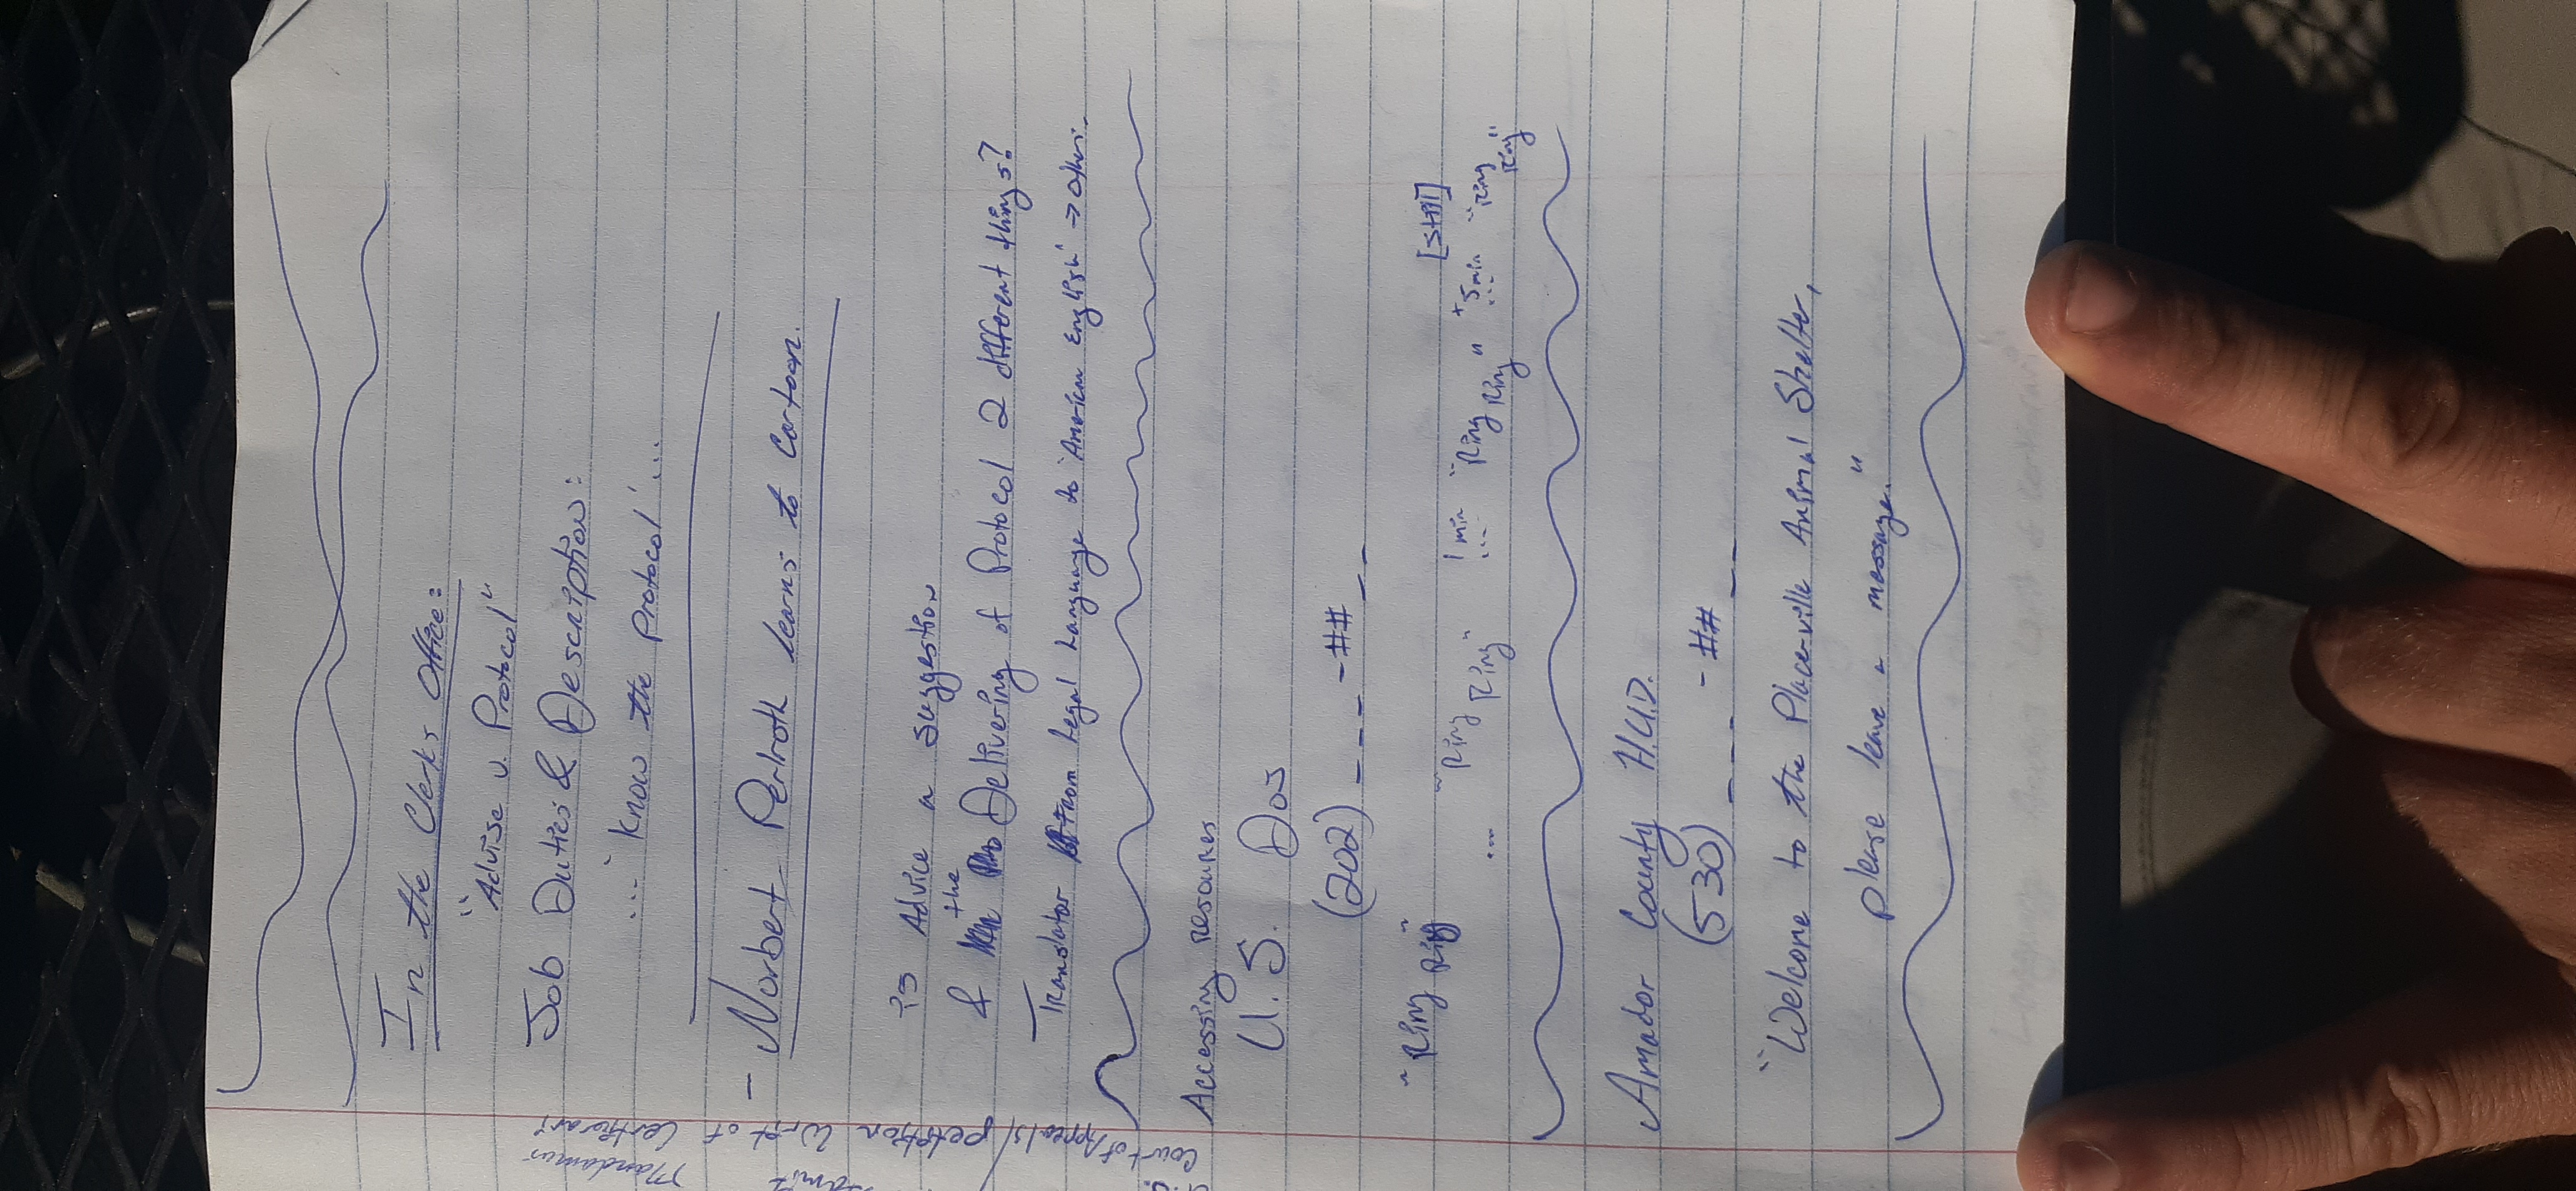 In the Clerks Office:
"Advise v. Protocol"
Job Duties & Description:
... 'Know the protocol' ...
- Norbert Perlroth learns to Cartoon.
is Advice a suggestion
& the Delivering of Protocol 2 different things?
Translator From Legal Language to 'American English' →
Accessing resources
U.S. Dos
(202) _ _ _ -##_ _
"Ring Ring" ... "Ring Ring" 1 min ... "Ring Ring" +5min ... [still] "Ring Ring"
Amador County H.U.D.
(530) _ _ _ -##_ _
"Welcome to the Placerville Animal Shelter,
please leave a message."
Mandamus
Court of Appeals/petition Writ of Certiorari